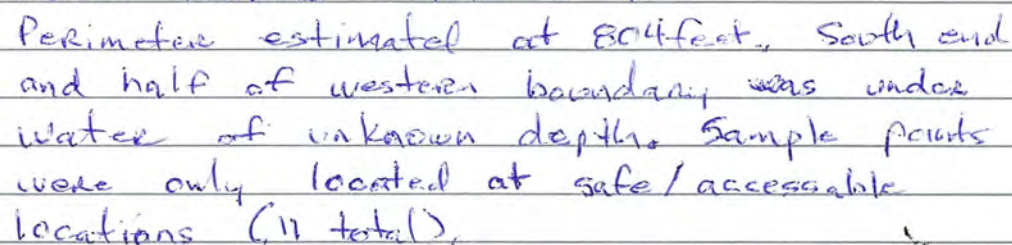 Perimeter estimated at 804 feet. South end
and half of western boundary was under
water of unknown depth. Sample points
were only located at safe/accessable
locations (11 total).